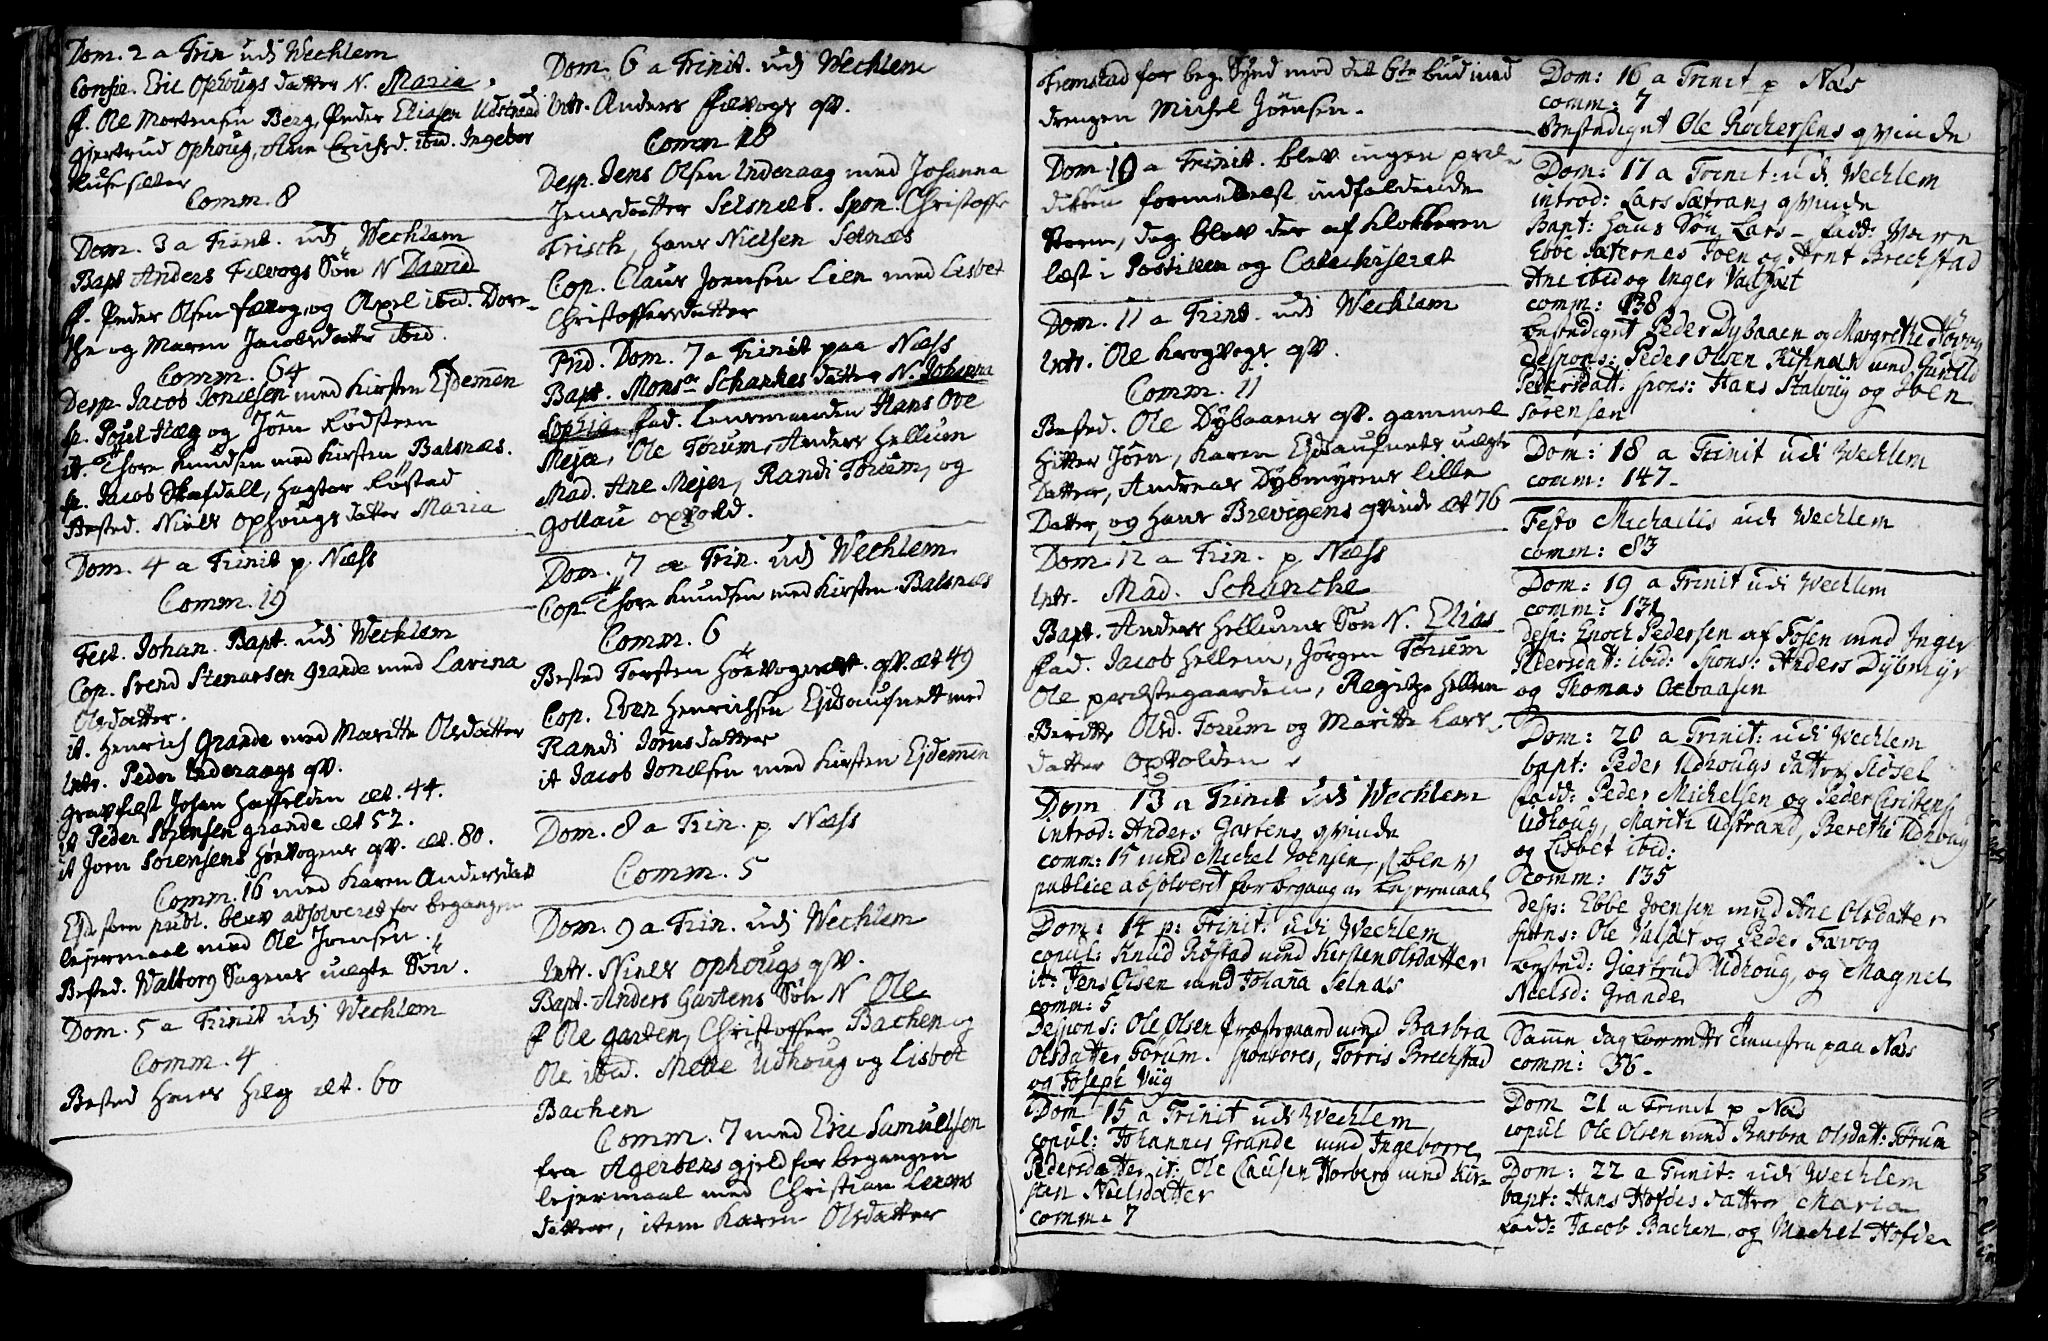 Dom. 2 a Trin udi Wechlem
Confir. Eric Ophougs datter N. Maria,
f. Ole Mortensen Berg, Peder Eliasen Udstrand
Giertrud Ophoug, Ane Erichsd. ibid. Ingebor
Comm. 8
Dom. 3 a Trinit. udi Wechlem
Bapt Anders Fævogs Søn N David
f. Peder Olsen fævog, og Axel ibid. Dore-
the og Maren Jacobsdatter ibid.
Comm. 64
Desp. Jacob Joniesen med Kirsten Ejdemen
sp. Poul Hæg og Joen Rødsteen
it. Thore Knudsen med Kirsten Balsnæs.
sp. Jacob Skafdall, Hagtor Røstad
Bested. Niels Ophougs datter Maria
Dom. 4 a Trinit p. Næss
Comm. 19
Fest. Johan. Bapt. udi Wechlem
Cop. Svend Stenarsen Grande med Lavina
Olsdatter.
it. Henrich Grande med Maritte Olsdatter
Intr. Peder Inderaags qv.
Gravfæst Johan Haffelden æt. 44.
it Peder Sørensen grande æt 52.
it Jorn Sørensens Høevogens qv. æt. 80.
Comm. 16 med Karen Andersdat
Ejd som publ. blev absolveret for begangen
lejermaal med Ole Joensen.
Bested. Walborg Sagens uægte Søn.
Dom. 5 a Trinit udi Wechlem
Comm. 4
Bested Hans Hæg æt. 60
Dom. 6 a Trinit. udi Wechlem
Intr. Anders Fævogs qv.
Comm. 18
Desp. Jens Olsen Inderaag med Johanna
Jensdatter Selsnæs. Spon. Christoffr
Frisch, Hans Nielsen Selnæs
Cop. Claus Joensen Lien med Lisbet
Christoffersdatter
Prid. Dom. 7 a Trinit paa Næss
Bapt. Monsr Schankes datter N. Johanna
Sophia fad. Lensmanden Hans Ove
Mejer, Ole Torum, Anders Hellum
Mad. Ane Mejer, Randi Torum, og
Gollau opvold.
Dom. 7 a Trin. udi Wechlem
Cop. Thore Knudsen med Kirsten Balsnæs
Comm. 6
Bested Torsten Høevogens qv. æt 49
Cop. Evan Henrichsen Ejdsaufnett med
Randi Jornsdatter
it Jacob Joniesen med Kirsten Ejdemen
Dom. 8 a Trin. p. Næss
Comm. 5
Dom. 9 a Trin. udi Wechlem
Intr. Niels Ophougs qv.
Bapt. Anders Gartens Søn N Ole
f Ole garten, Christoffer Bachen og
Ole ibid. Mette Udhoug og Lisbet
Bachen
Comm. 7 med Eric Samuelsen
fra Agerbens gjeld for begangen
lejermaal med Christian Lexons
datter, item Karen Olsdatter
Fremstad for beg. Synd mod det 6te bud med
drengen Michel Joensen.
Dom. 10 a Trinit. blev ingen præ-
diken formedelst indfaldende
Storm, dog blev der af Klokkeren
læst i Postillen og Catechiseret
Dom. 11 a Trinit. udi Wechlem
Intr. Ole Krogvogs qv.
Comm. 11
Bested. Ole Dybaaens qv. gammel
Hitter Jørn, Karen Ejdsaufnets uægte
Datter, Andreas Dybmyrens lille
Datter, og Hans Brevigens qvinde æt 76
Dom. 12 a Trin. p. Næss
Intr. Mad. Schancke
Bapt. Anders Hellums Søn N. Elias
Fad. Jacob Hellem, Jørgen Torum
Ole præstegaarden, Regitze Hellem
Beritte Olsd. Torum og Maritte Lars
datter Opvolden
Dom 13 a Trinit udi Wechlem
introd: Anders Gartens qvinde
comm: 15 med Michel Joensen,
publice absolveret for begangen Lejermaal
Dom: 14 p: Trinit: udi Wechlem
copul: Knud Røstad med Kirsten Olsdatter
it: Jens Olsen med Johana Selnas
comm: 5
Despons: Ole Olsen Præstegaard med Barbra
Olsdatter Torum. sponsores, Torris Brechstad
og Joseph Viig
Dom 15 a Trinit udi Wechlem
copul: Johannes Grande med Ingeborre
Pedersdatter it: Ole Clausen Horberg med Kir-
sten Nielsdatter
comm. 7
Dom: 16 a Trinit p Næs
comm: 7
Bestediget Ole Rochersens qvinde
Dom: 17 a Trinit: udi Wechlem
introd: Lars Sætrans qvinde
Bapt: Hans Søn Lars - fadd: Varn
Ebbe Sæternes Joen og Arnt Brechstad
Ane ibid og Inger Valset
comm: 138
Bestediget Peder Dybaaen og Margrethe Høvog
despons: Peder Olsen Risenæs med Gurild
Pedersdatt. spons: Hans Stalvig og Iben
Sørensen
Dom: 18 a Trinit udi Wechlem
comm: 147.
Festo Michaelis udi Wechlem
comm: 83
Dom: 19 a Trinit udi Wechlem
comm: 131
desp: Enoch Pedersen af Fosen med Inger
Pedersdatt: ibid: spons: Anders Dybmyr
og Thomas Oxbaasen
Dom: 20 a Trinit: udi Wechlem
bapt: Peder Udhougs datter Sidsel
fadd: Peder Michelsen og Peder Christens
Udhoug, Marith Ustrand, Berethe Udhoug
og Lisbet ibid:
comm: 135
desp: Ebbe Joensen med Ane Olsdatter
spons: Ole Valset og Peder Favog
bested: Giertrud Udhoug, og Magnel
Neelsd: Grande
Samme dag forrette Tienesten paa Næs
comm: 36.
Dom 21 a Trinit p Næs
copul Ole Olsen med Barbra Olsdatt: Torum
Dom: 22 a Trinit: udi Wechlem
bapt: Hans Hofdes datter Maria
fadd: Jacob Bachen, og Mechel Hofde